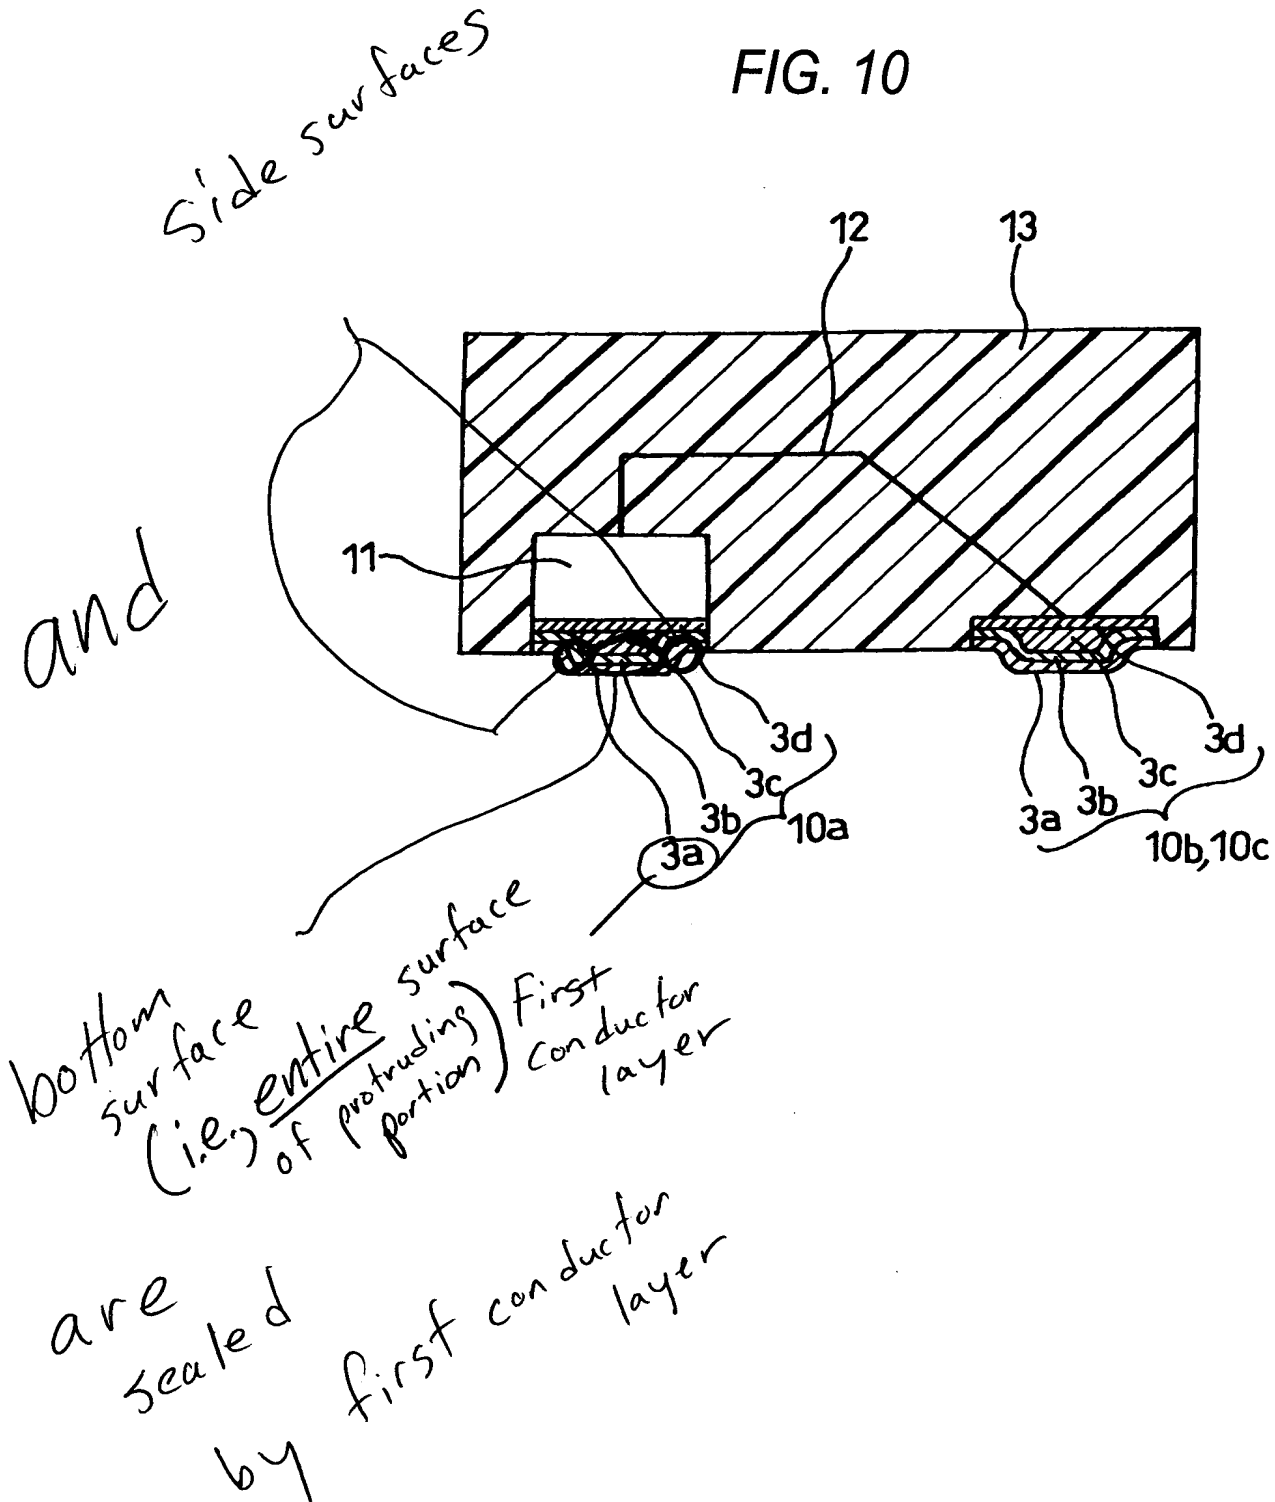 side surfaces
FIG. 10
12
13
and
11
3d
3c
3b
3a
10a
3d
3c
3b
3a
10b,10c
bottom
surface
(i.e., entire surface
of protruding
portion)
First
conductor
layer
are
sealed
by first conductor
layer